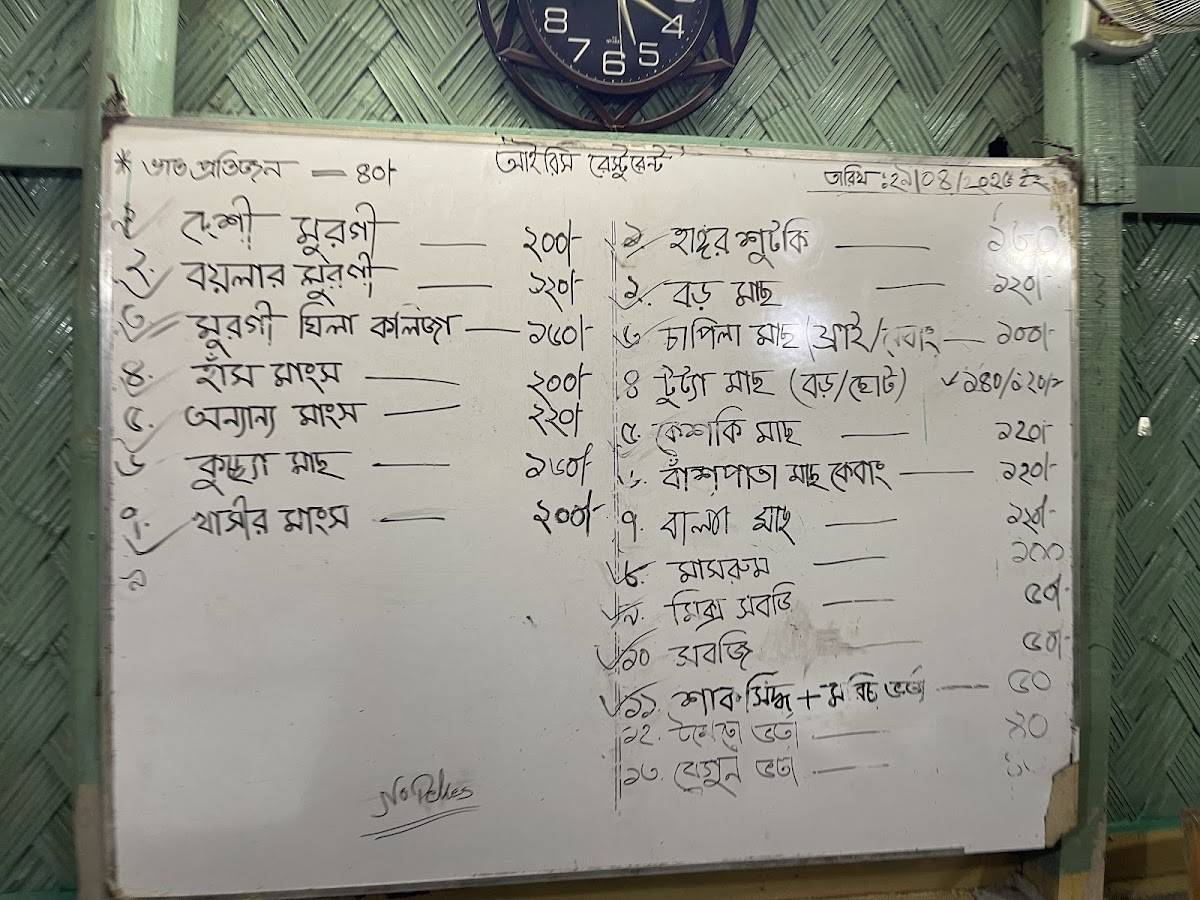 8 7 6 5 4
আইরিস রেস্টুরেন্ট
* ভাত প্রতিজন — ৪০/-
তারিখ : ২৯/০৪/২০২৫ ইং
১. দেশী মুরগী — ২০০/-
২. বয়লার মুরগী — ১২০/-
৩. মুরগী ঘিলা কলিজা — ১৬০/-
৪. হাঁস মাংস — ২০০/-
৫. অন্যান্য মাংস — ২২০/-
৬ কুচ্যা মাছ — ১৬০/-
৭. খাসীর মাংস — ২০০/-
১ হাঙ্গর শুটকি — ১৬০
২. বড় মাছ — ১২০/-
৩ চাপিলা মাছ (ফ্রাই/কেবাং — ১০০/-
৪ টুট্যা মাছ (বড়/ছোট) ১৪০/১২০/-
৫. কেশকি মাছ — ১২০/-
৬. বাঁশপাতা মাছ কেবাং — ১২০/-
৭. বাল্যা মাছ —
৮. মাসরুম — ১০০
৯. মিক্স সবজি — ৫০/-
১০ সবজি — ৫০/-
১১. শাক সিদ্ধ + মরিচ ভর্তা — ৫০
১২. টমেটো ভর্তা —
১৩. বেগুন ভর্তা —